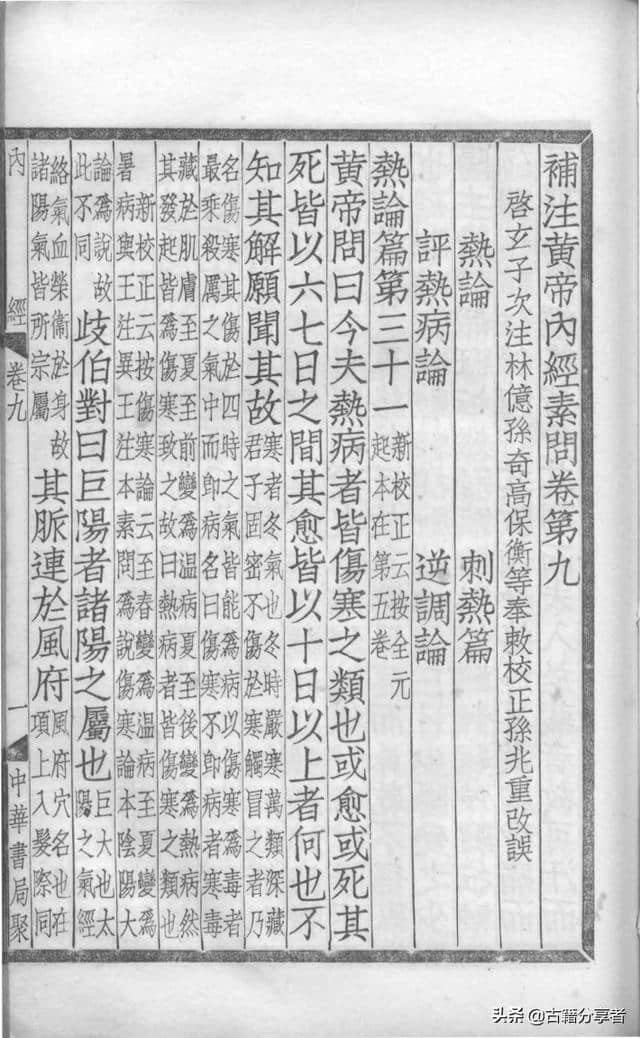 補注黃帝內經素問卷第九
啓玄子次注林億孫奇高保衡等奉敕校正孫兆重改誤
熱論 刺熱篇
評熱病論 逆調論
熱論篇第三十一 新校正云按全元
起本在第五卷
黃帝問曰今夫熱病者皆傷寒之類也或愈或死其
死皆以六七日之間其愈皆以十日以上者何也不
知其解願聞其故 寒者冬氣也冬時嚴寒萬類深藏
君子固密不傷於寒觸冒之者乃
名傷寒其傷於四時之氣皆能爲病以傷寒爲毒者
最乘殺厲之氣中而卽病名曰傷寒不卽病者寒毒
藏於肌膚至夏至前變爲温病夏至後變爲熱病然
其發起皆爲傷寒致之故曰熱病者皆傷寒之類也
新校正云按傷寒論云至春變爲温病至夏變爲
暑病與王注異王注本素問爲說傷寒論本陰陽大
論爲說故
此不同 歧伯對曰巨陽者諸陽之屬也 巨大也太
陽之氣經
絡氣血榮衞於身故
諸陽氣皆所宗屬 其脈連於風府 風府穴名也在
項上入髮際同
內經 卷九 一 中華書局聚
头条 @古籍分享者